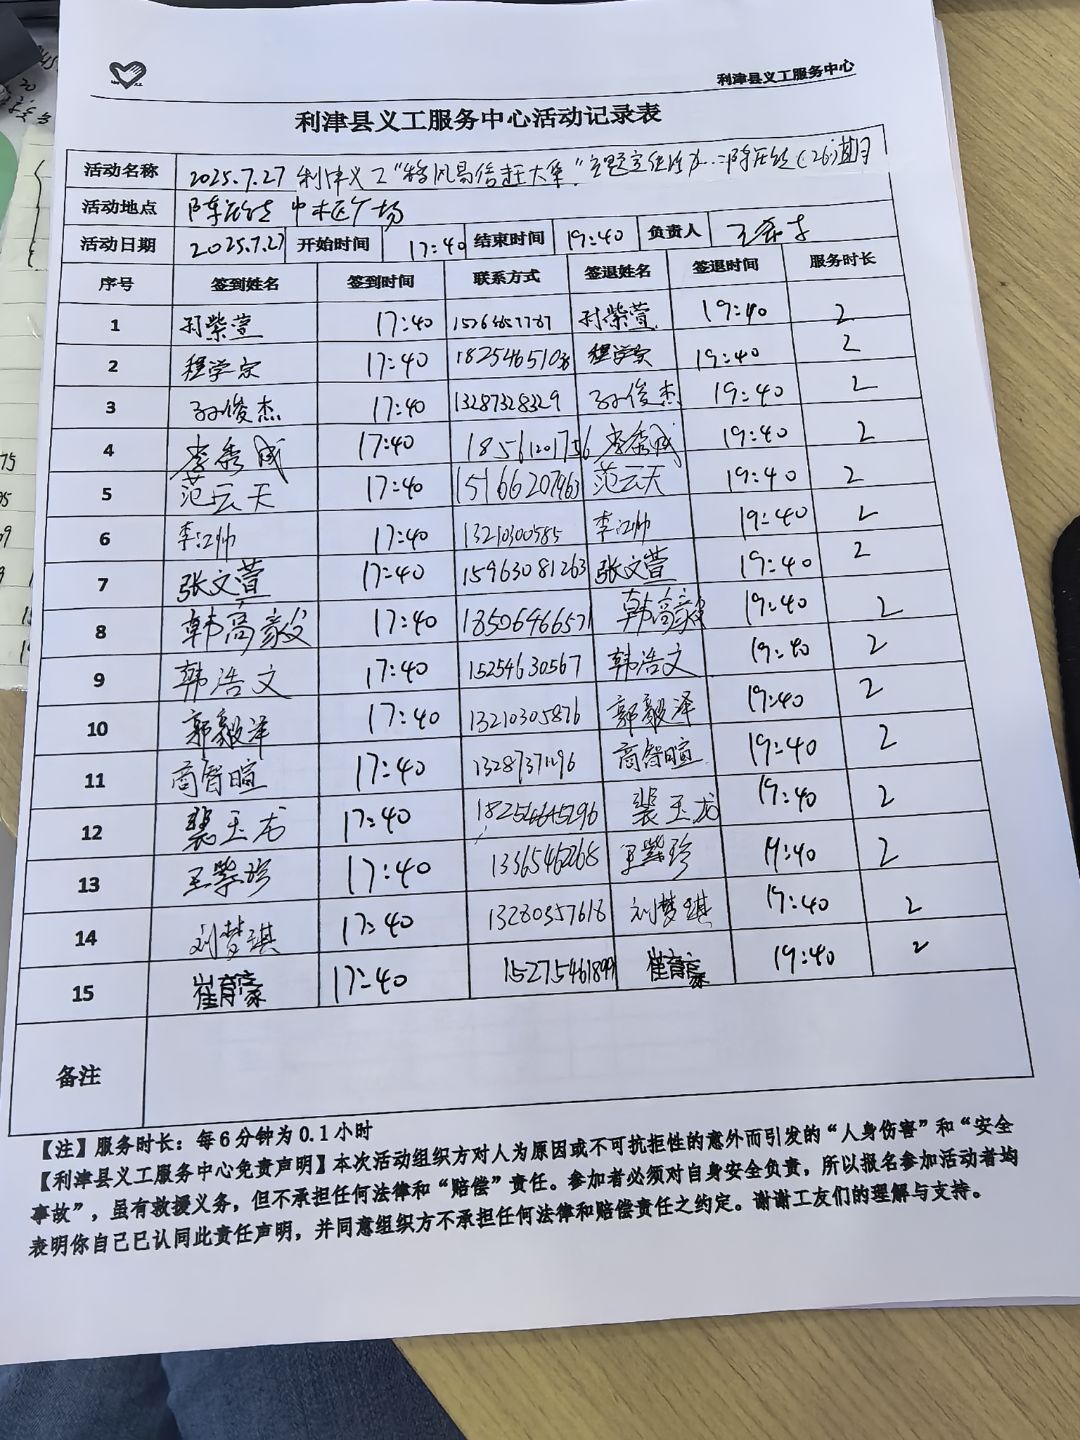 利津县义工服务中心
利津县义工服务中心活动记录表
活动名称 2025.7.27 利津义工“移风易俗赶大集”主题宣传活动
活动地点 陈庄镇 中社区广场
活动日期 2025.7.27 开始时间 17:40 结束时间 19:40 负责人
序号 签到姓名 签到时间 联系方式 签退姓名 签退时间 服务时长
1 刘紫萱 17:40 刘紫萱 19:40 2
2 程学宗 17:40 程学宗 19:40 2
3 孙俊杰 17:40 13287328329 孙俊杰 19:40 2
4 李秀成 17:40 李秀成 19:40 2
5 范云天 17:40 15166207963 范云天 19:40 2
6 李江帅 17:40 13210300585 李江帅 19:40 2
7 张文萱 17:40 15963081263 张文萱 19:40 2
8 韩高毅 17:40 18506466571 韩高毅 19:40 2
9 韩浩文 17:40 15254630567 韩浩文 19:40 2
10 郭毅泽 17:40 13210305876 郭毅泽 19:40 2
11 商智暄 17:40 商智暄 19:40 2
12 裴玉龙 17:40 裴玉龙 19:40 2
13 王紫珍 17:40 王紫珍 19:40 2
14 刘梦琪 17:40 13280357618 刘梦琪 19:40 2
15 崔育豪 17:40 崔育豪 19:40 2
备注
【注】服务时长：每6分钟为0.1小时
【利津县义工服务中心免责声明】本次活动组织方对人为原因或不可抗拒性的意外而引发的“人身伤害”和“安全
事故”，虽有救援义务，但不承担任何法律和“赔偿”责任。参加者必须对自身安全负责，所以报名参加活动者均
表明你自己已认同此责任声明，并同意组织方不承担任何法律和赔偿责任之约定。谢谢工友们的理解与支持。